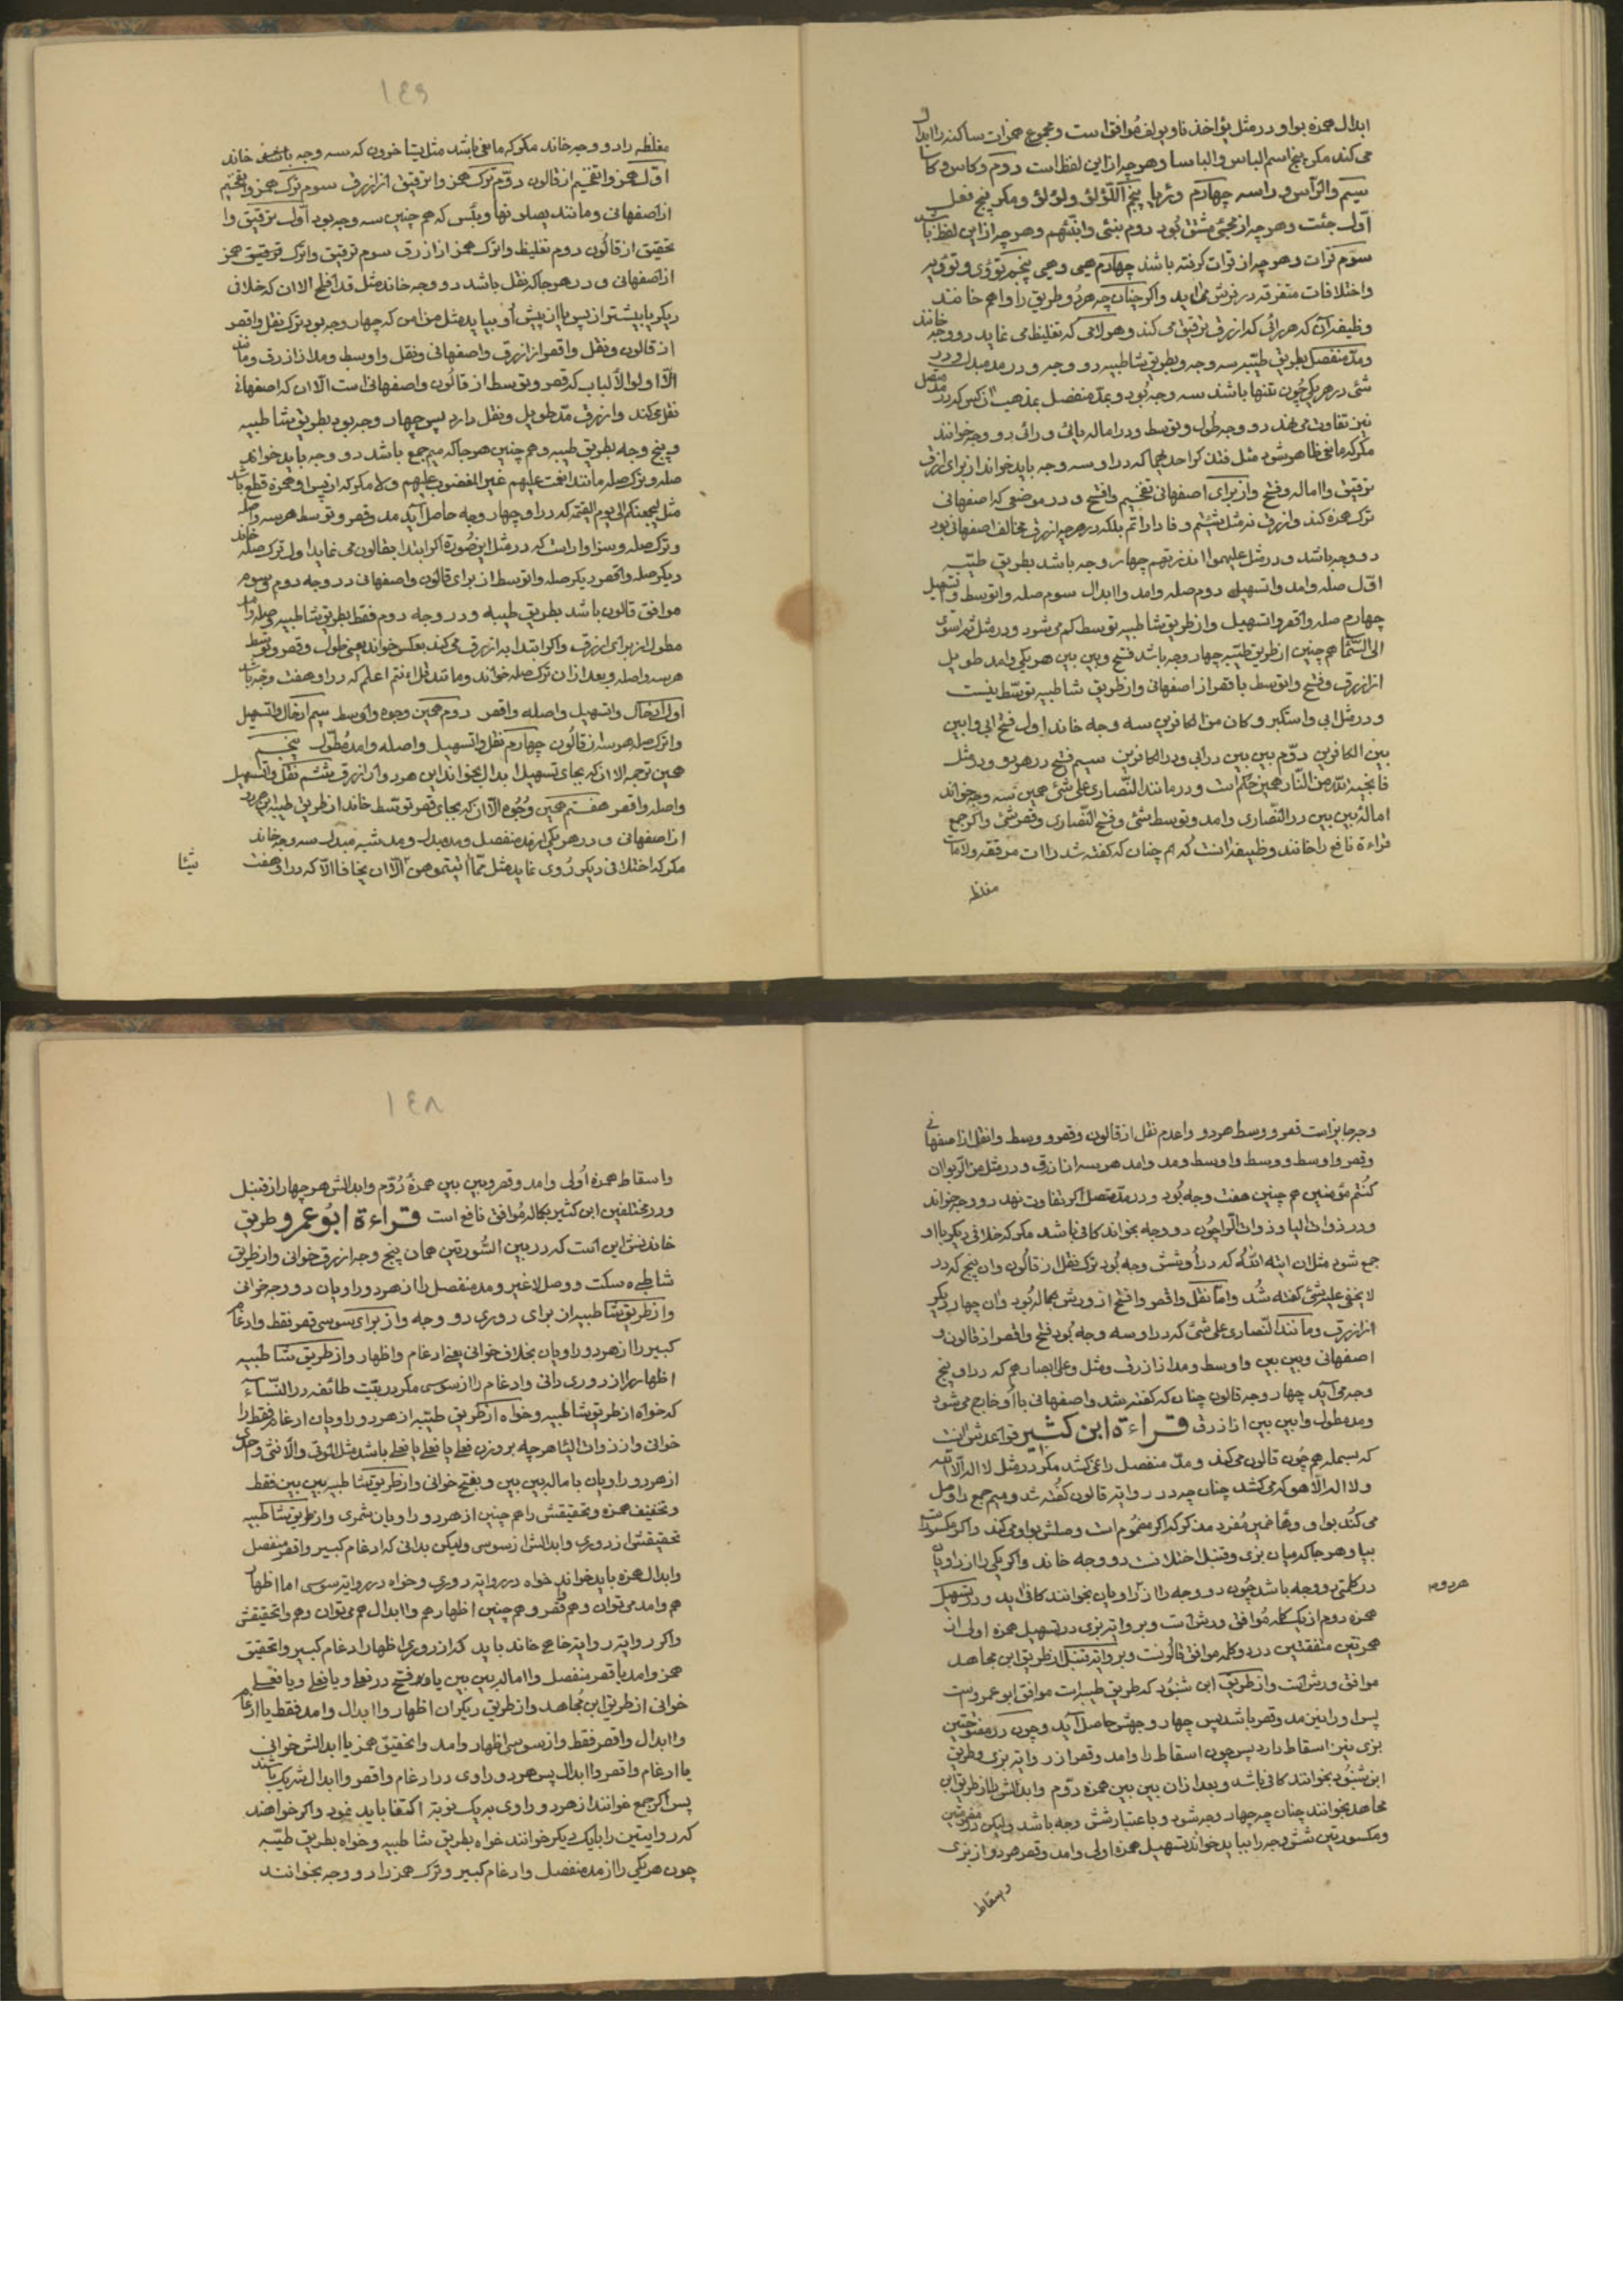 ابدال همزه بواو در مثل یؤاخذنا و یؤلف موافق است و مجموع همزات ساکنه را ابدال
می کند مگر پنج اسم الباس و الباسا و هر چه از این لفظ است دوم و کاس و کاسا
سیم والرأس و راسه چهارم و رئیا پنجم اللؤلؤ و لؤلؤ و مکر پنج فعل
اول جئت و هر چه از مجئ مشتق بود دوم نبئ و انبئهم و هر چه از این لفظ باشد
سوم قرات و هر چه از قرات گرفته باشد چهارم هیی و یهیی پنجم تؤوی و تؤویه
و اختلافات متفرقه در فرش می اید و اگر چنان چه هر دو طریق را وا هم خانند
وظیفه آن که هر رائی که ازرق ترقیق می کند و هر لامی که تغلیظ می نماید دو وجه خانند
و مد منفصل بطریق طیبه سه وجه و بطریق شاطبیه دو وجه و در مد مبدل و در
شئ در هر یکی چون تنها باشد سه وجه بود و بمد منفصل بمذهب آن کس که در مد متصل
نیز تفاوت می نهد دو وجه طول و توسط و در اماله یائی و رائی دو وجه خوانند
مگر که مانعی ظاهر شود
ترقیق و اماله و فتح و از برای اصفهانی تفخیم وا فتح و در موضعی که اصفهانی
ترک همزه کند و ازرق نه مثل شئتم و فاداراتم بلکه در هر چه ازرق مخالف اصفهانی بود
دو وجه باشد و در مثل علیهم ءانذرتهم چهار وجه باشد بطریق طیبه
اول صله وا مد وا تسهیل دوم صله وا مد وا ابدال سوم صله وا توسط وا تسهیل
چهارم صله وا قصر وا تسهیل و از طریق شاطبیه توسط کم می شود و در مثل ثم استوی
الی السما هم چنین از طریق طیبه چهار وجه باشد فتح و بین بین هر یکی وا مد طویل
از ازرق و فتح وا توسط یا قصر از اصفهانی و از طریق شاطبیه توسط نیست
و در مثل ابی واستکبر و کان من الکافرین سه وجه خاند اول فتح ابی وا بین
بین الکافرین دوم بین بین در ابی و در الکافرین سیم فتح در هر دو و در مثل
فانجیه الله من النار همین حکم است و در مانند النصاری علی شئ همین سه وجه خواند
اماله بین بین در النصاری وا مد و توسط شئ و فتح النصاری و قصر شئ و اگر جمع
قراءة نافع را خانند وظیفه انست که هم چنان که گفته شد راات مرققه و لامات
مغلظه
١٤٩
مغلظه را دو وجه خاند مگر که مانعی باشد مثل
اول همز وا تفخیم از قالون دوم ترک همز وا ترقیق از ازرق سوم ترک همز وا تفخیم
از اصفهانی و مانند یصلونها و بئس که هم چنین سه وجه بود اول ترقیق وا
تحقیق از قالون دوم تغلیظ وا ترک همز از ازرق سوم ترقیق وا ترک همز
از اصفهانی و در هر جا که نقل باشد دو وجه خاند مثل قد افلح الا ان که خلاف
دیگر یا پیشتر از پس یا از پیش او بیاید مثل من امن که چهار وجه بود ترک نقل وا قصر
از قالون و نقل وا قصر از ازرق و اصفهانی و نقل وا وسط و مد از ازرق و مانند
الا اولوا الالباب که قصر و توسط از قالون و اصفهانی است الا ان که اصفهانی
نقل می کند و ازرق مد طویل و نقل دارد پس چهار وجه بود بطریق شاطبیه
و پنج وجه بطریق طیبه و هم چنین هر جا که میم جمع باشد دو وجه باید خواند
صله و ترک صله مانند انعمت علیهم غیر المغضوب علیهم ولا مگر که از پس او همزه قطع باشد
مثل لیجمعنکم الی یوم القیمه که در او چهار وجه حاصل آید مد و قصر و توسط هر سه وا صله
و ترک صله و سزاوار است که در مثل این صورة اگر ابتدا بقالون می نماید اول ترک صله خاند
دیگر صله وا قصر دیگر صله وا توسط از برای قالون و اصفهانی در وجه دوم و سوم
موافق قالون باشد بطریق طیبه و در وجه دوم فقط بطریق شاطبیه
مطول از برای ازرق و اگر ابتدا به ازرق می کند بعکس خواند یعنی طول و قصر و توسط
هر سه وا صله و بعد از ان ترک صله خواند و مانند قل ءانتم اعلم که در او هفت وجه باشد
اول ادخال وا تسهیل وا صله وا قصر دوم همین وجوه وا توسط سیم ادخال وا تسهیل
وا ترک صله هر سه از قالون چهارم نقل وا تسهیل وا صله وا مد مطول پنجم
همین توجه الا ان که بجای تسهیل ابدال بخواند این هر دو از ازرق ششم نقل وا تسهیل
وا صله وا قصر هفتم همین وجوه الا ان که بجای قصر توسط خاند از طریق طیبه
از اصفهانی و در هر یکی از مد منفصل و مد مبدل و مد شبه مبدل سه وجه خاند
مگر که اختلافی دیگر روی نماید مثل
شیئا
وجه جایز است قصر و وسط هر دو وا عدم نقل از قالون و قصر و وسط وا نقل از اصفهانی
و قصر وا وسط و وسط وا وسط و مد وا مد هر سه از ازرق و در مثل من الربوا ان
کنتم مؤمنین هم چنین هفت وجه بود و در مد متصل اگر تفاوت نهد دو وجه خواند
و در ذوات الیا و ذوات الرا چون دو وجه بخواند کافی باشد مگر که خلافی دیگر با او
جمع شود مثل ان اتیه الله که در او شش وجه بود ترک نقل از قالون وان پنج که در
لا یخفی علیه شئ گفته شد واما نقل وا قصر وا فتح از ورش بکماله بود وان چهار دیگر
از ازرق و مانند النصاری علی شئ که در او سه وجه بود فتح وا قصر از قالون و
اصفهانی و بین بین وا وسط و مد از ازرق و مثل و علی ابصارهم که در او پنج
وجه می آید چهار وجه قالون چنان که گفته شد و اصفهانی با او خارج می شود
و مد مطول وا بین بین از ازرق قراءة ابن کثیر قواعدش انست
که بسمله هم چون قالون می کند و مد منفصل را نمی کشد مگر در مثل لا اله الا الله
و لا اله الا هو که می کشد چنان چه در روایة قالون گفته شد و میم جمع را وصل
می کند بواو و ها ضمیر مفرد مذکر که اگر مضموم است وصلش بواو می کند و اگر مکسور است
بیا و هر جا که میان بزی و قنبل اختلافست دو وجه خاند و اگر یکی را از راویان
در کلمتی دو وجه باشد چون دو وجه را از راویان بخوانند کافی اید و در تسهیل هر دوم
همزه دوم از یک کلمه موافق ورش است و بروایة بزی در تسهیل همزه اولی از
همزتین متفقتین در دو کلمه موافق قالونست و بروایة قنبل از طریق ابن مجاهد
موافق ورش است و از طریق ابن شنبوذ که طریق طیبه است موافق ابو عمروست
پس او را نیز مد و قصر باشد پس چهار وجهش حاصل آید و چون در مفتوحتین
بزی نیز اسقاط دارد پس چون اسقاط را وا مد و قصر از روایة بزی و طریق
ابن شنبوذ بخوانند کافی باشد و بعد از ان بین بین همزه دوم وا بدالش را از طریق ابن
مجاهد بخوانند چنان چه چهار وجه شود و باعتبار شش وجه باشد ولیکن در مضمومتین
و مکسورتین شش وجه را بباید خواند تسهیل همزه اولی وا مد و قصر هر دو از بزی
واسقاط
١٤٨
واسقاط همزه اولی وا مد و قصر و بین بین همزه دوم وا بدالش هر چهار از قنبل
و در مختلفین ابن کثیر بکماله موافق نافع است قراءة ابو عمرو و طریق
خاندنش این است که در بین السورتین همان پنج وجه ازرق خوانی و از طریق
شاطبیه سکت و وصل لا غیر و مد منفصل را از هر دو راویان دو وجه خوانی
و از طریق شاطبیه از برای دوری دو وجه و از برای سوسی قصر فقط و ادغام
کبیر را از هر دو راویان بخلاف خوانی یعنی ادغام و اظهار و از طریق شاطبیه
اظهار را از دوری دانی و ادغام را از سوسی مگر در بیت طائفه در النساء
که خواه از طریق شاطبیه و خواه از طریق طیبه از هر دو راویان ادغام فقط را
خوانی و از ذوات الیا هر چه بر وزن فعلی یا فعلی یا فعلی باشد مثل التقوی والانثی و احدی
از هر دو راویان باماله بین بین و بفتح خوانی و از طریق شاطبیه بین بین فقط
و تخفیف همزه و تحقیقش را هم چنین از هر دو راویان شمری و از طریق شاطبیه
تحقیقش از دوری و ابدالش از سوسی ولیکن بدانی که ادغام کبیر وا قصر منفصل
وا بدال همزه باید خواند خواه در روایة دوری و خواه در روایة سوسی اما اظهار
هم وا مد می توان و هم وا قصر و هم چنین اظهار هم وا ابدال هم می توان و هم وا تحقیقش
و اگر روایة روایة خاصی خاند باید که از دوری اظهار ادغام کبیر وا تحقیق
همز وا مد یا قصر منفصل وا اماله بین بین یا وا فتح در فعلی و یا فعلی و یا فعلی
خوانی از طریق ابن مجاهد و از طریق دیگران اظهار وا ابدال وا مد فقط یا ادغام
وا ابدال وا قصر فقط و از سوسی اظهار وا مد وا تحقیق همز یا ابدالش خوانی
یا ادغام وا قصر وا ابدال پس هر دو راوی در ادغام وا قصر وا ابدال شریک باشند
پس اگر جمع خوانند از هر دو راوی به یک نوبة اکتفا باید نمود و اگر خواهند
که روایتین را با یک دیگر خوانند خواه بطریق شاطبیه و خواه بطریق طیبه
چون هر یکی را از مد منفصل و ادغام کبیر و ترک همز را دو وجه بخوانند